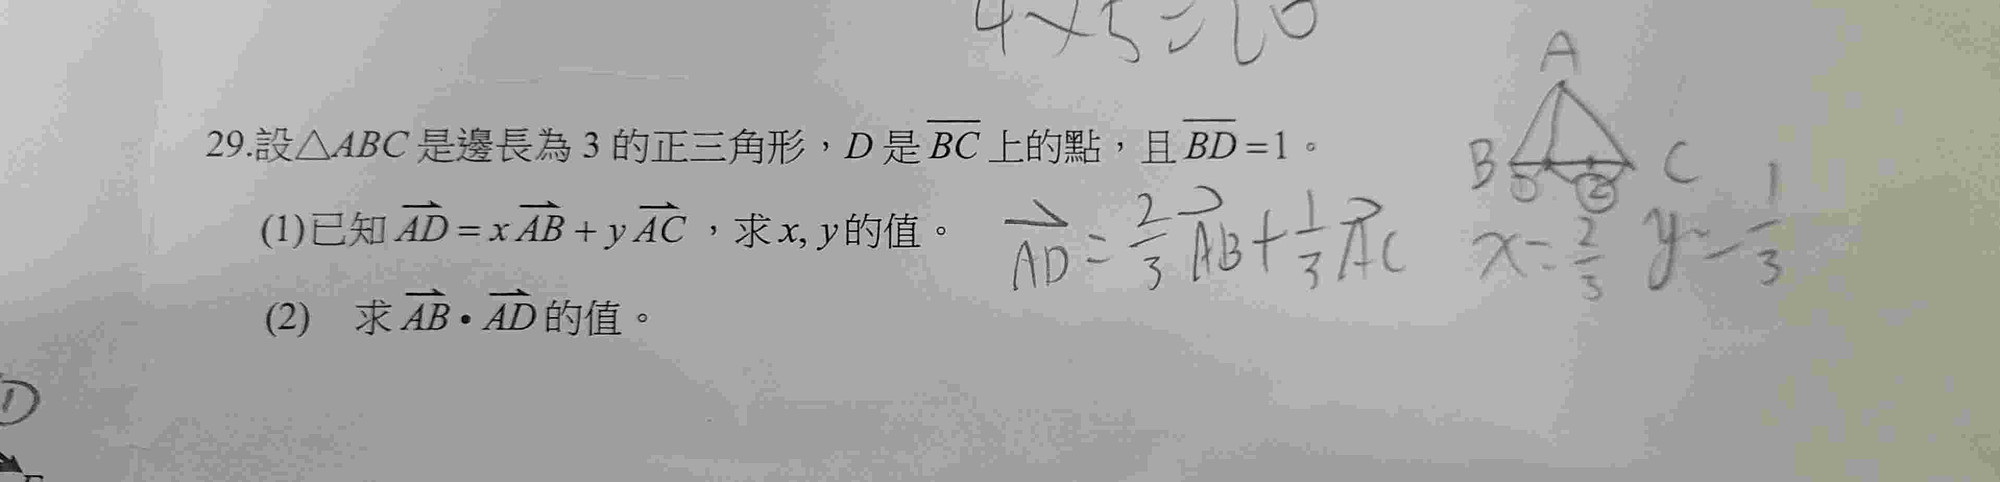 4×5=20
A
29.設△ABC 是邊長為 3 的正三角形，D 是 BC 上的點，且 BD =1。
B ① ② C
(1)已知 AD = x AB + y AC ，求 x, y 的值。 AD = 2/3 AB + 1/3 AC x = 2/3 y = 1/3
(2) 求 AB • AD 的值。
①